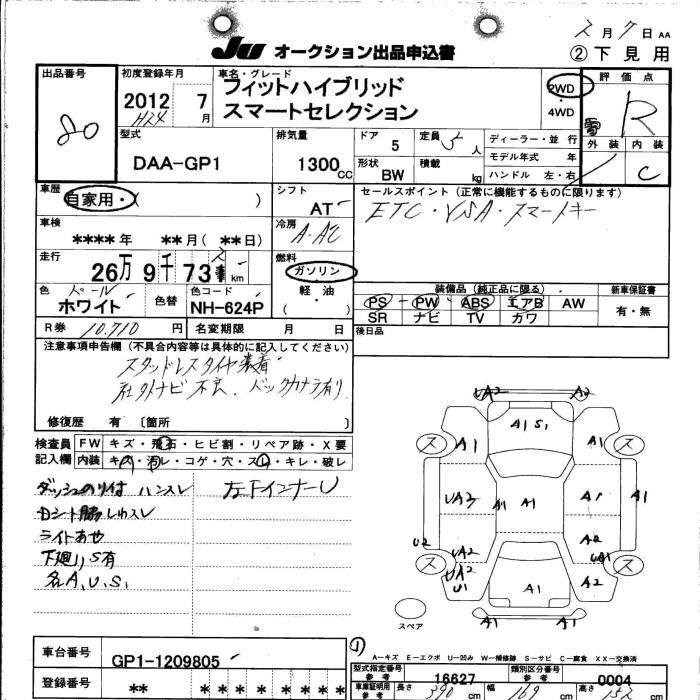 2月7日 AA
JU オークション出品申込書
② 下見用
出品番号
80
初度登録年月
2012 7
H24 月
車名・グレード
フィットハイブリッド
スマートセレクション
2WD
・
4WD
評価点
R
外装 内装
C
型式
DAA-GP1
排気量
1300cc
ドア
5
定員
5人
形状
BW
積載
kg
ディーラー・並行
モデル年式 年
ハンドル 左・右
車歴
自家用・( )
シフト
AT
セールスポイント (正常に機能するものに限ります)
ETC・VSA・スマートキー
車検
**** 年 **月( **日)
冷房
A-AC
走行
26万9千73 km
燃料
ガソリン
軽・油
( )
色
パール
ホワイト
色替
色コード
NH-624P
装備品 (純正品に限る)
PS PW ABS エアB AW
SR ナビ TV カワ
新車保証書
有・無
R券 10,710 円
名変期限 月 日
後日品
注意事項申告欄 (不具合内容等は具体的に記入してください)
スタッドレスタイヤ装着
社外ナビ不良 バックカメラ有り
修復歴 有 〔箇所 〕
検査員 FW キズ・飛石・ヒビ割・リペア跡・X要
記入欄 内装 キズ・汚レ・コゲ・穴・スレ・キレ・破レ
ダッシュのり付 ハンスレ
Dシート脇しわスレ
ライトあせ
下廻りS有
各A.U.S.
左下インナーU
UA2 A2
A1 S1
ス ス
A1 A1
UA2 A1 A1 A1 A1
U2 A2
UA2 UA1
ス ス
UA2 A2
U1
A1
A1 A1
スペア
①
A-キズ E-エクボ U-凹み W-補修跡 S-サビ C-腐食 XX-交換済
車台番号
GP1-1209805
型式指定番号
参考
16627
類別区分番号
参考
0004
登録番号
** * * * * * * *
車庫証明用
参考
長さ 390 cm 幅 169 cm 高さ 152 cm